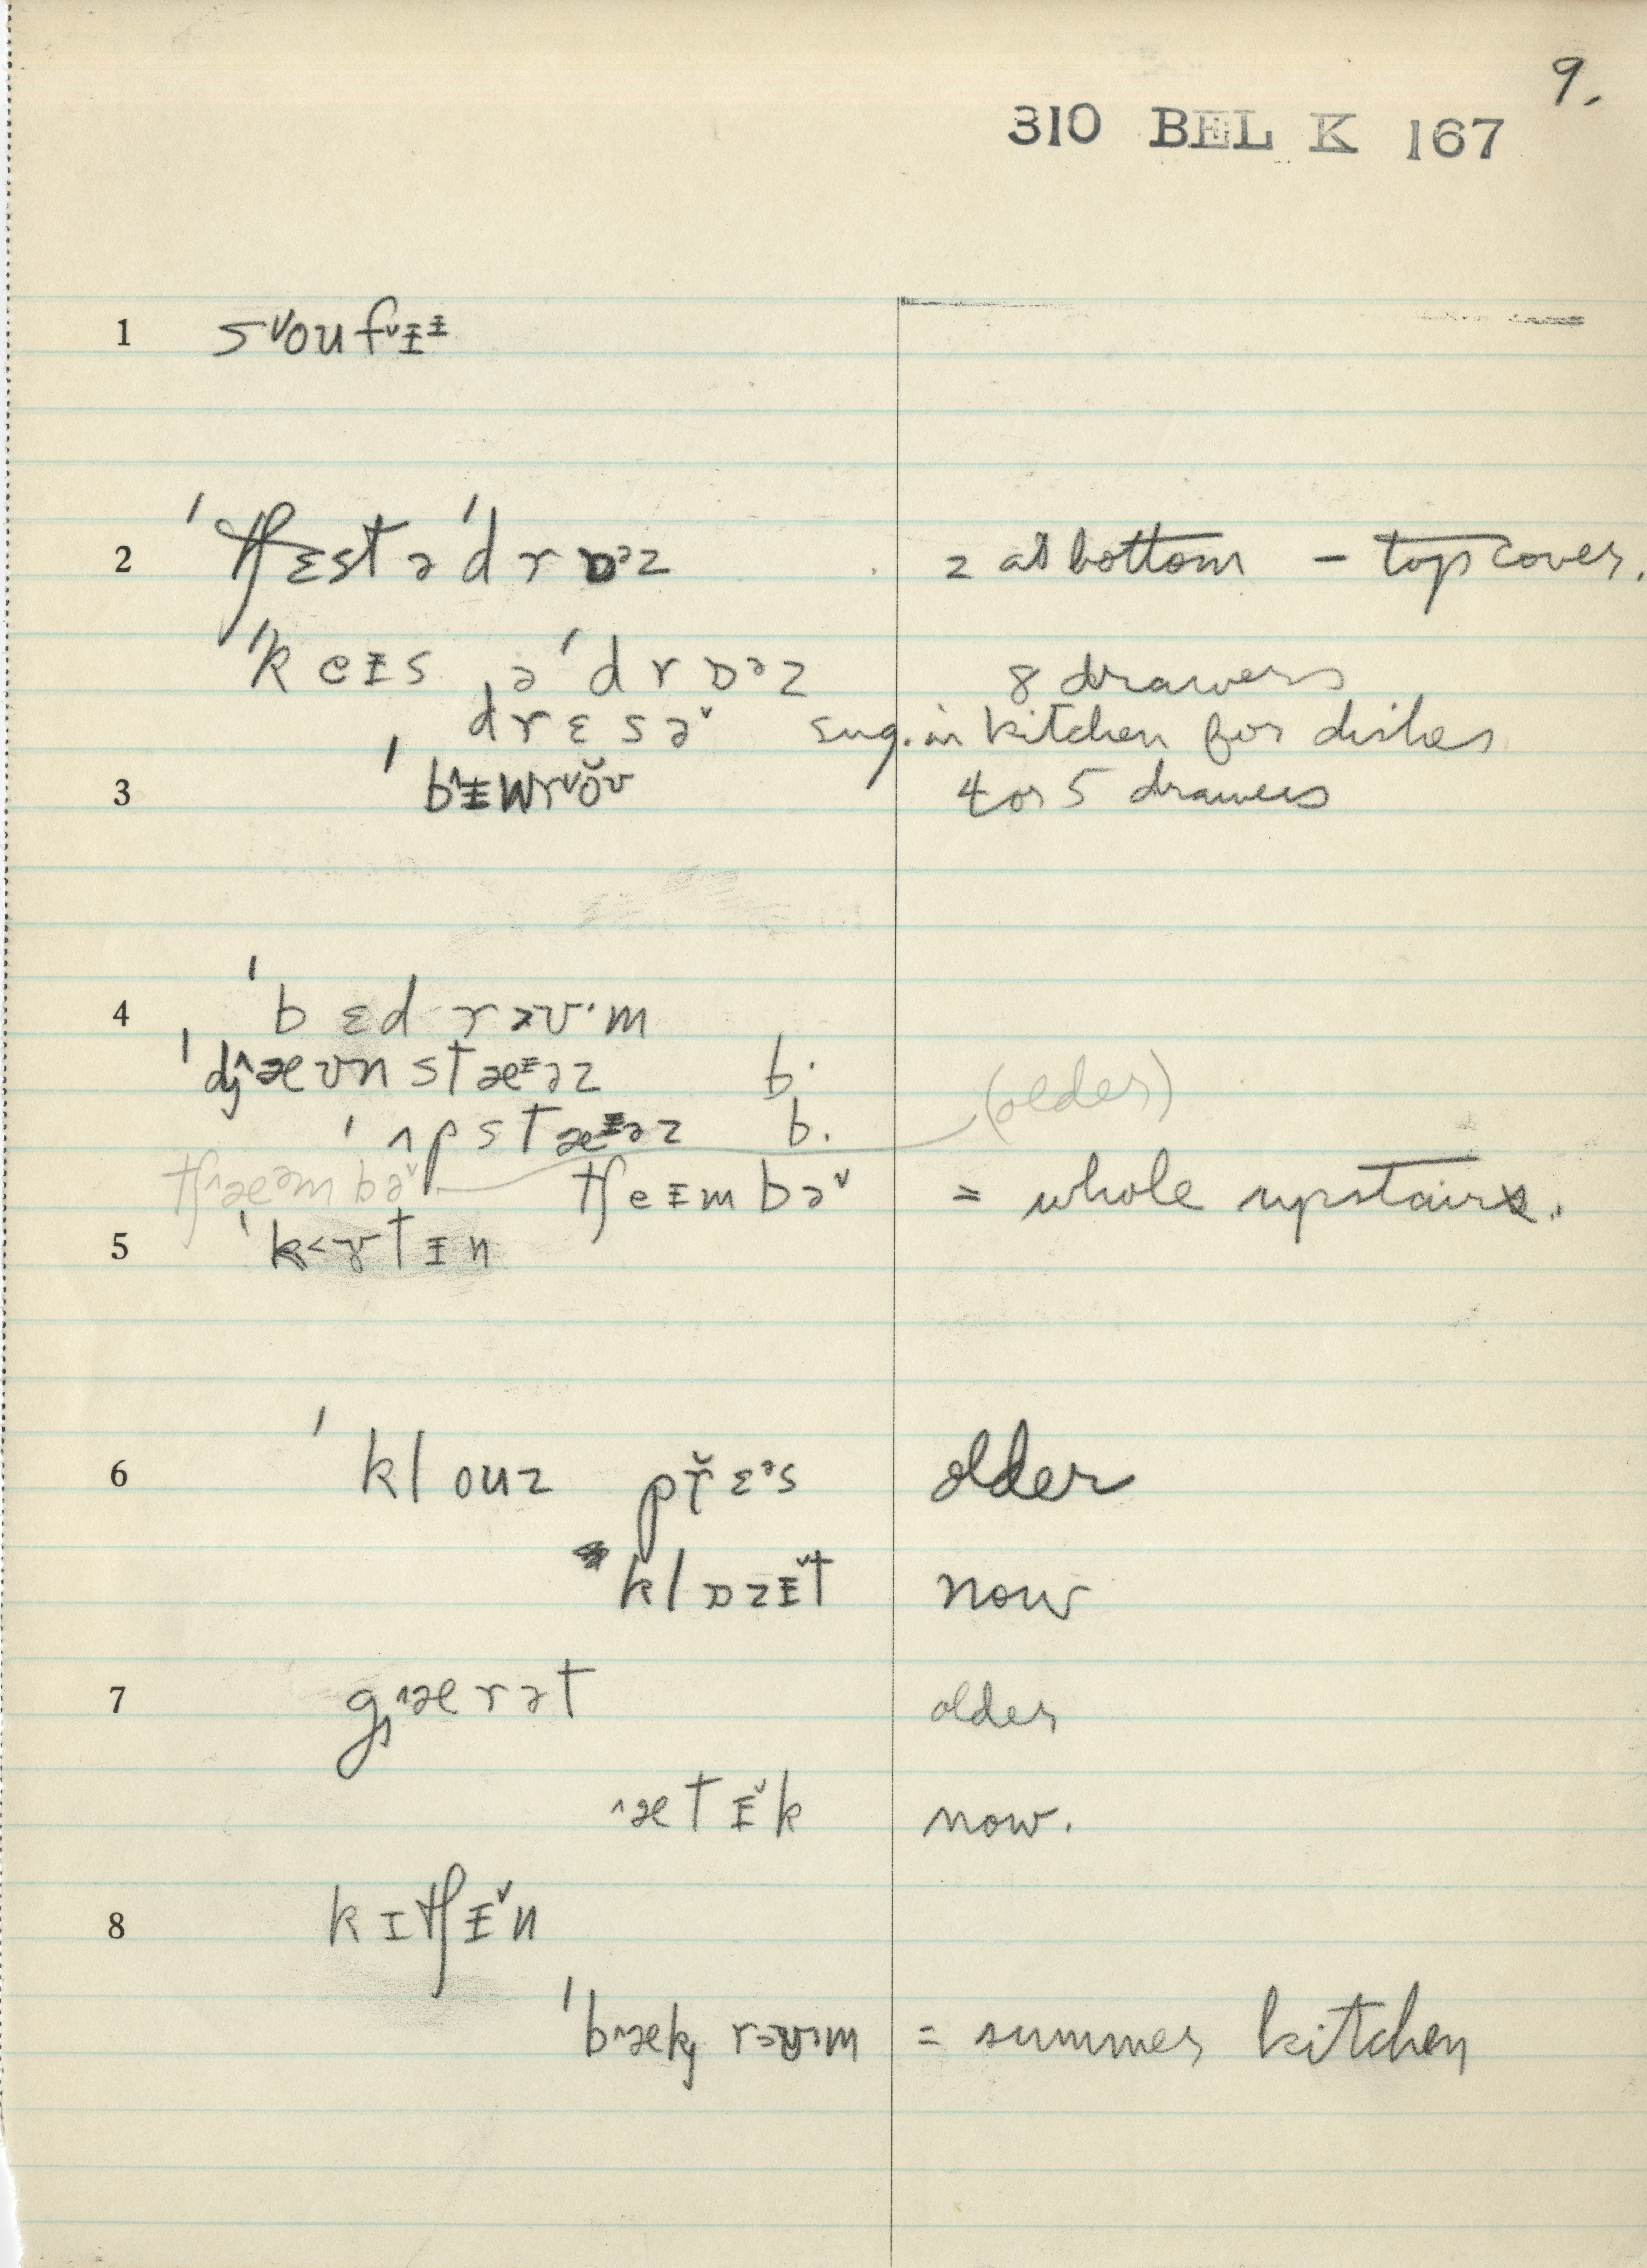 9.
310 BEL K 167
1 sᵛoufᵛᵻᵻ
2 ˈtʃɛst ə ˈdrɒᵊz 2 at bottom – top cover.
ˈkeᵻs ə ˈdrɒᵊz 8 drawers
ˌdrɛsəᵛ sug. in kitchen for dishes
3 ˈb^ᵻwrᵛŏʊ 4 or 5 drawers
4 ˈbɛd rəʊ·m
ˈd̡^æʊnstæᵻəz b.
ˈʌpstæᵻəz b. (older)
tʃ^æᵊmbəᵛ tʃeᵻmbəᵛ = whole upstairs.
5 ˈk<ɤtᵻn
6 ˈklouz pr̆ɛᵊs older
klɒzᵻ̆t now
7 g̡^ærət older
^ætᵻ̆k now.
8 kɪtʃᵻ̆n
ˈb^æk̡ rəʊ·m = summer kitchen